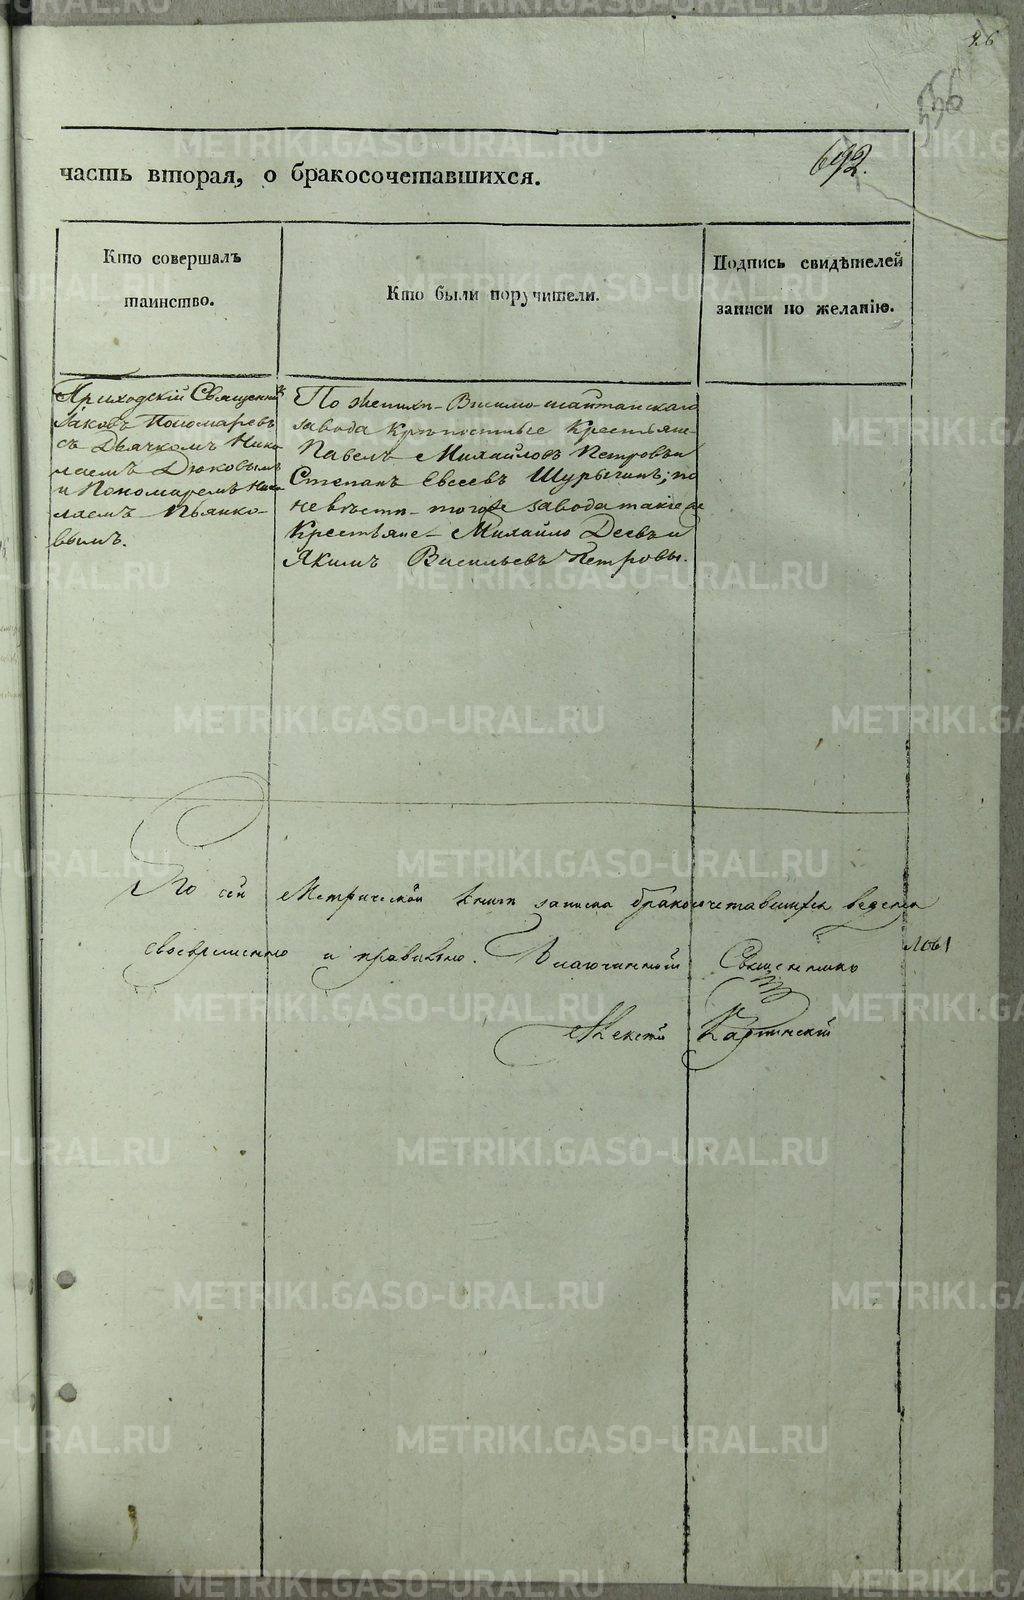 46
556
692.
часть вторая, о бракосочетавшихся.
Кто совершалъ
таинство.
Кто были поручители.
Подпись свидѣтелей
записи по желанію.
Приходскій Священникъ
Іаковъ Пономаревъ
съ Дьячкомъ Нико
лаемъ Дюковымъ
и Пономаремъ Нико
лаемъ Пьянко-
вымъ.
По женихѣ Висимо-шайтанскаго
завода Крѣпостные Крестьяне
Павелъ Михайловъ Петровъ и
Степанъ Евсеевъ Шурыгинъ; по
невѣстѣ тогоже завода такіе же
Крестьяне Михайло Деевъ и
Якимъ Васильевъ Петровы.
По сей Метрической книгѣ записка бракосочетавшихся ведена
своевременно и правильно. Благочинный Священникъ
Алексѣй Карпинскій
METRIKI.GASO-URAL.RU